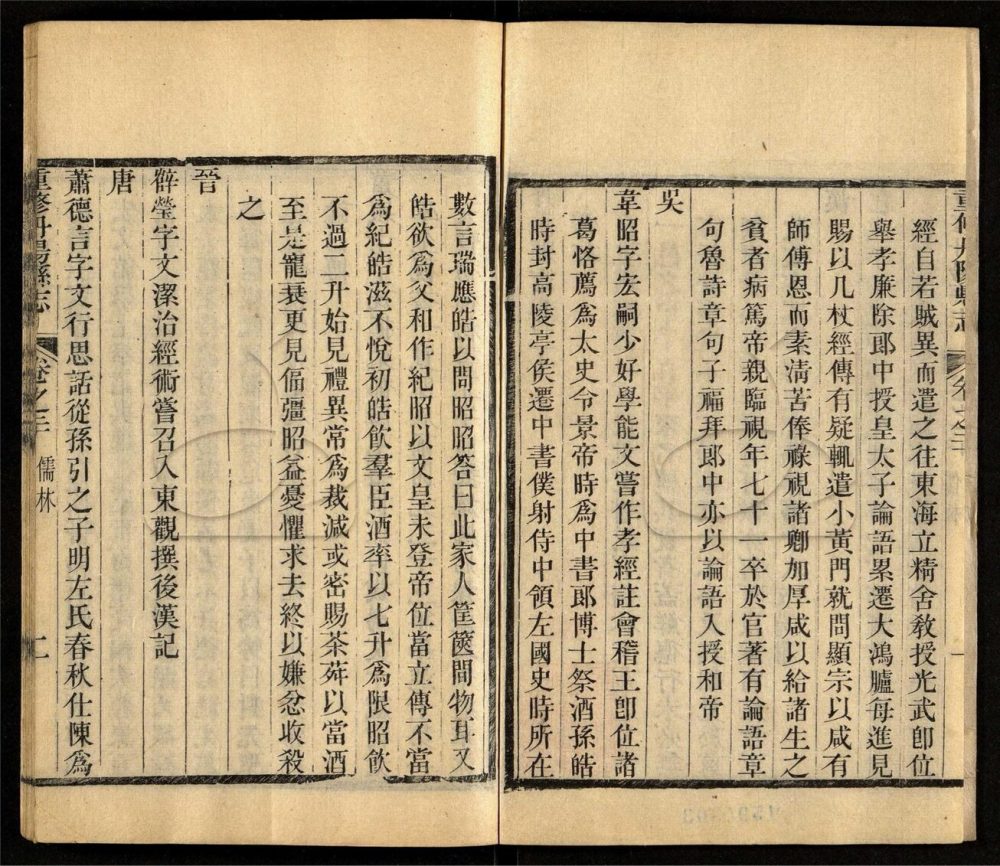 重修丹陽縣志 卷之二 一
經自若賊異而遣之往東海立精舍敎授光武卽位
舉孝廉除郞中授皇太子論語累遷大鴻臚每進見
賜以几杖經傳有疑輒遣小黃門就問顯宗以咸有
師傅恩而素淸苦俸祿視諸卿加厚咸以給諸生之
貧者病篤帝親臨視年七十一卒於官著有論語章
句魯詩章句子福拜郞中亦以論語入授和帝
吳
韋昭字宏嗣少好學能文嘗作孝經註會稽王卽位諸
葛恪薦爲太史令景帝時爲中書郞博士祭酒孫皓
時封高陵亭侯遷中書僕射侍中領左國史時所在
數言瑞應皓以問昭昭答曰此家人筐篋間物耳又
皓欲爲父和作紀昭以文皇未登帝位當立傳不當
爲紀皓滋不悅初皓飮羣臣酒率以七升爲限昭飮
不過二升始見禮異常爲裁減或密賜茶荈以當酒
至是寵衰更見偪彊昭益憂懼求去終以嫌忿收殺
之
晉
薛瑩字文潔治經術嘗召入東觀撰後漢記
唐
蕭德言字文行思話從孫引之子明左氏春秋仕陳爲
重修丹陽縣志 卷之二 儒林 二